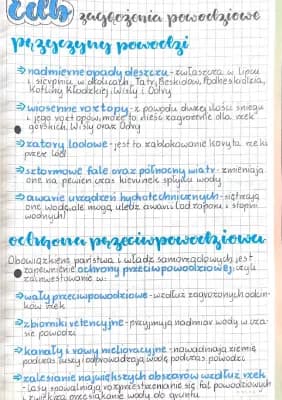 zagrożenia powodziowe
przyczyny powodzi
→ nadmierne opady deszczu - zwłaszcza w lipcu
i sierpniu w okolicach, Tatr, Beskidów, Podbeskidzia,
Kotliny Kłodzkiej, Wisły i Odry
→ wiosenne roztopy - z powodu dużej ilości śniegu
i jego roztopów, może to nieść zagrożenie dla rzek
górskich, Wisły oraz Odry
→ zatory lodowe - jest to zablokowanie koryta rzeki
przez lód
→ sztormowe fale oraz północny wiatr - zmieniają
one na pewien czas kierunek spływu wody
→ awarie urządzeń hydrotechnicznych -
one wodę, ale mogą uledz awarii (od zapory i stopni
wodnych)
ochrona przeciwpowodziowa
Obowiązkiem państwa i władz samorządowych jest
zapewnienie ochrony przeciwpowodziowej, czyli
zainwestowanie w:
→ wały przeciwpowodziowe - wzdłuż zagrożonych odcin-
ków rzek
→ zbiorniki retencyjne - przyjmują nadmiar wody w cza-
sie powodzi
→ kanały i rowy melioracyjne - nawadniają ziemię
podczas suszy i odprowadzają wodę podczas powodzi
→ zalesianie największych obszarów wzdłuż rzek
- lasy spowalniają rozprzestrzenianie się fal powodziowych
i zwiększa przesiąkanie wody do gruntu